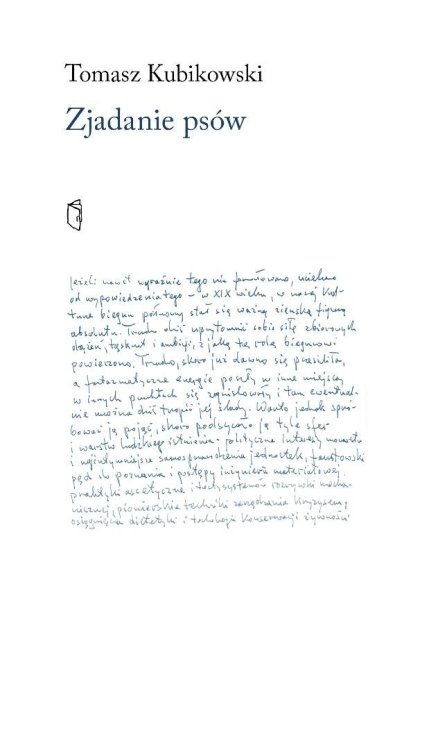 Tomasz Kubikowski
Zjadanie psów
Jeżeli nawet wyraźnie tego nie formułowano, uciekano
od wypowiedzenia tego – w XIX wieku, w naszej kul-
turze biegun północny stał się ważną ziemską figurą
absolutu. Trudno dziś uprzytomnić sobie siłę zbiorowych
dążeń, tęsknot i ambicji, z jaką tę rolę biegunowi
powierzono. Trudno, skoro już dawno się przesiliła,
a fantazmatyczne energie poszły w inne miejsca,
w innych punktach się zogniskowały i tam ewentual-
nie można dziś tropić jej ślady. Warto jednak spró-
bować ją pojąć, skoro podsycało ją tyle sfer
i warstw ludzkiego istnienia: polityczne interesy mocarstw
i najintymniejsze samosprawdzenia jednostek, faustowski
pęd do poznania i postępy inżynierii materiałowej,
praktyki ascetyczne i rozrywki
pionierskie techniki zarządzania kryzysem,
osiągnięcia dietetyki i technologii konserwacji żywności